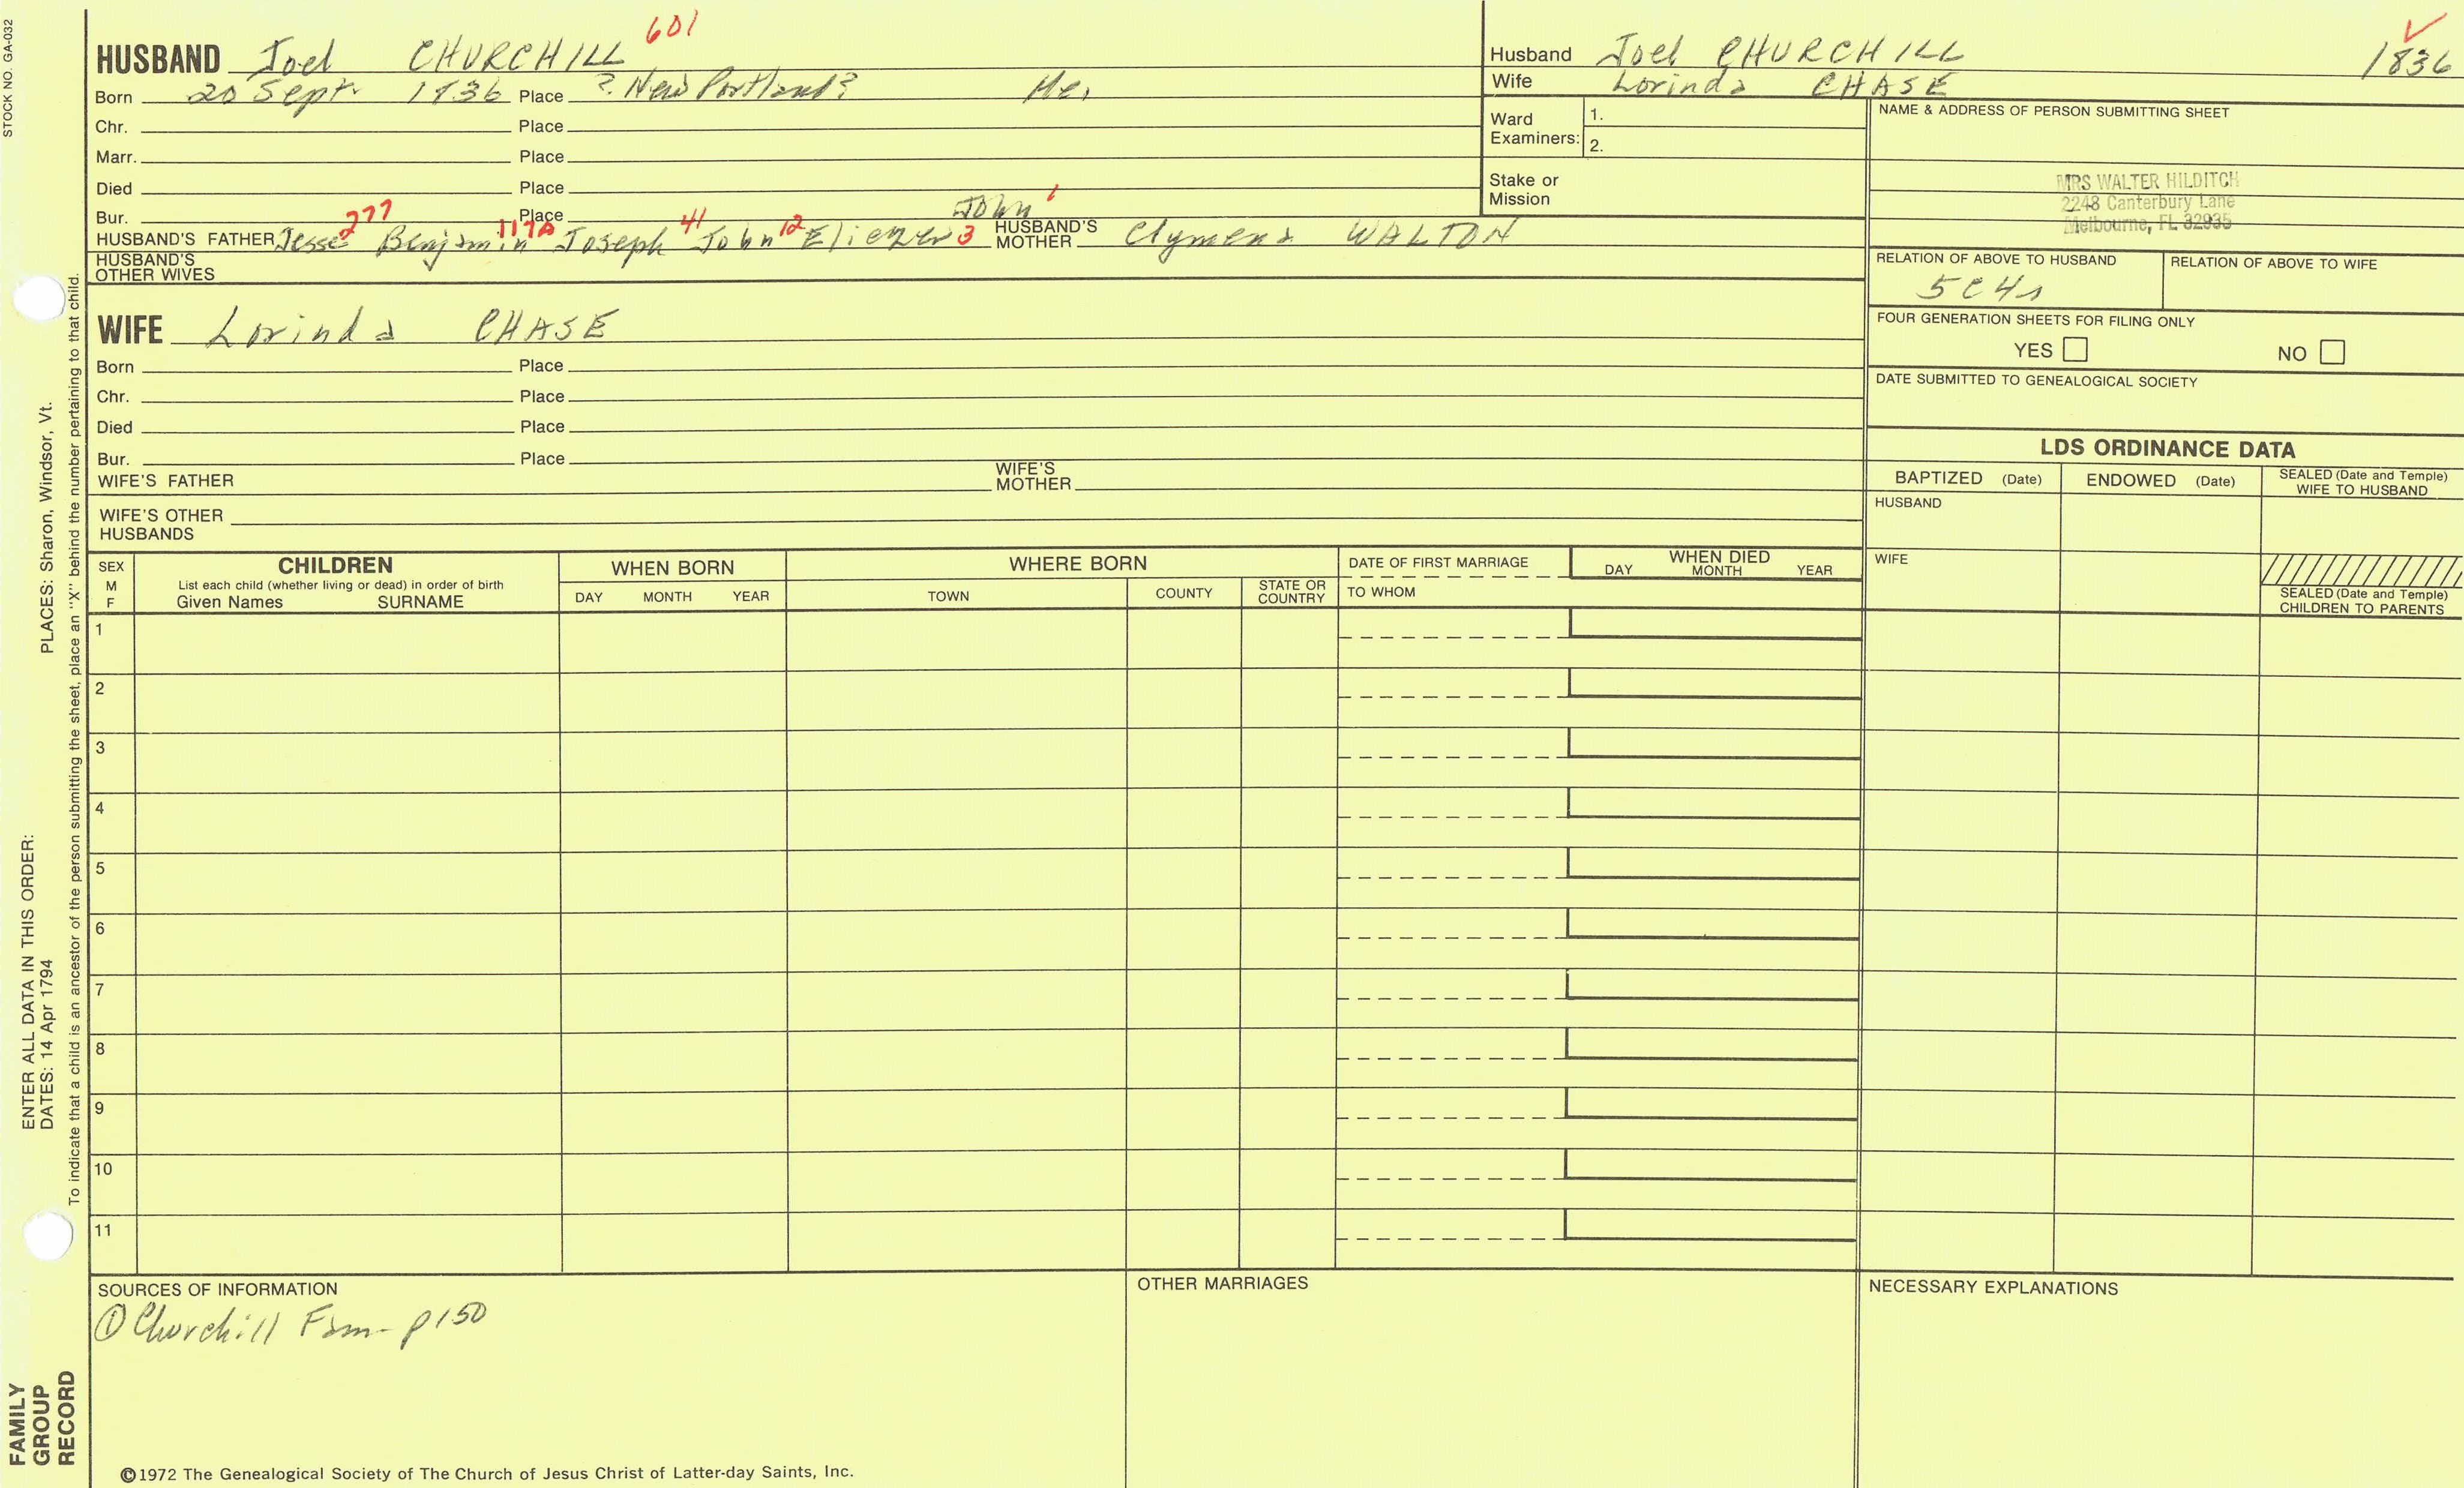 STOCK NO. GA-032
601
HUSBAND Joel CHURCHILL
Born 20 Sept. 1836 Place ? New Portland? Me.
Chr. Place
Marr. Place
Died Place
Bur. Place
John 1
HUSBAND'S FATHER Jesse 277 Benjamin 117A Joseph 41 John 12 Eliezer 3 HUSBAND'S MOTHER Clymena WALTON
HUSBAND'S OTHER WIVES
WIFE Lorinda CHASE
Born Place
Chr. Place
Died Place
Bur. Place
WIFE'S FATHER WIFE'S MOTHER
WIFE'S OTHER HUSBANDS
Husband Joel CHURCHILL 1836
Wife Lorinda CHASE
Ward Examiners: 1.
2.
Stake or Mission
NAME & ADDRESS OF PERSON SUBMITTING SHEET
MRS WALTER HILDITCH
2248 Canterbury Lane
Melbourne, FL 32935
RELATION OF ABOVE TO HUSBAND RELATION OF ABOVE TO WIFE
5C4r
FOUR GENERATION SHEETS FOR FILING ONLY
YES NO
DATE SUBMITTED TO GENEALOGICAL SOCIETY
LDS ORDINANCE DATA
BAPTIZED (Date) ENDOWED (Date) SEALED (Date and Temple) WIFE TO HUSBAND
HUSBAND
WIFE
SEALED (Date and Temple) CHILDREN TO PARENTS
SEX M F
CHILDREN
List each child (whether living or dead) in order of birth
Given Names SURNAME
WHEN BORN
DAY MONTH YEAR
WHERE BORN
TOWN COUNTY STATE OR COUNTRY
DATE OF FIRST MARRIAGE
TO WHOM
WHEN DIED
DAY MONTH YEAR
1
2
3
4
5
6
7
8
9
10
11
SOURCES OF INFORMATION
① Churchill Fam- p150
OTHER MARRIAGES
NECESSARY EXPLANATIONS
©1972 The Genealogical Society of The Church of Jesus Christ of Latter-day Saints, Inc.
ENTER ALL DATA IN THIS ORDER:
DATES: 14 Apr 1794 PLACES: Sharon, Windsor, Vt.
To indicate that a child is an ancestor of the person submitting the sheet, place an "X" behind the number pertaining to that child.
FAMILY
GROUP
RECORD